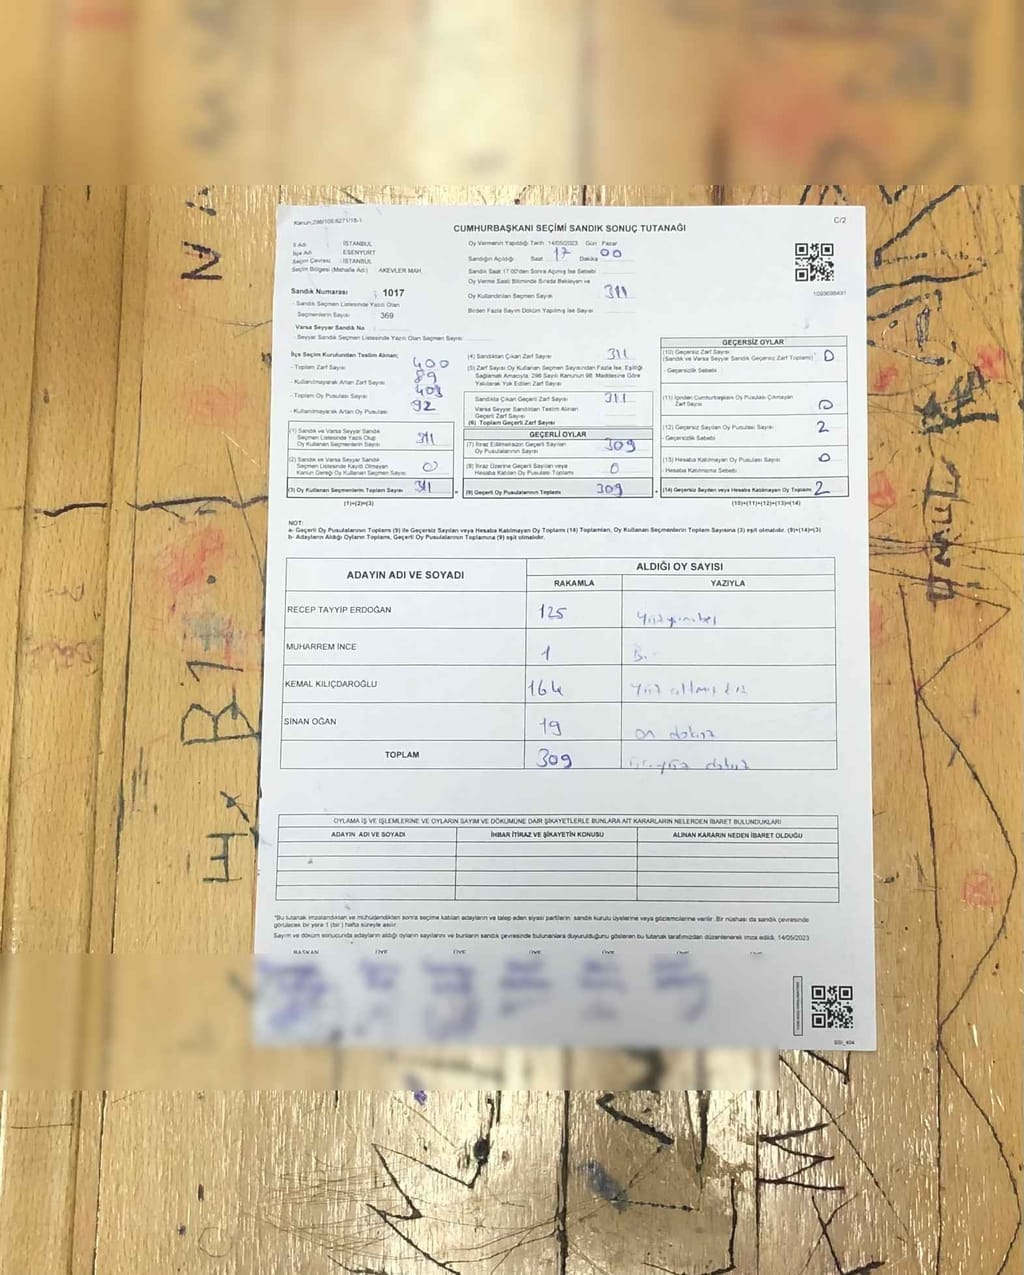 Kanun:298/105;6271/18-1
C/2
CUMHURBAŞKANI SEÇİMİ SANDIK SONUÇ TUTANAĞI
İl Adı : İSTANBUL
İlçe Adı : ESENYURT
Seçim Çevresi : İSTANBUL
Seçim Bölgesi (Mahalle Ad.) : AKEVLER MAH.
Sandık Numarası : 1017
- Sandık Seçmen Listesinde Yazılı Olan
Seçmenlerin Sayısı : 369
Varsa Seyyar Sandık No
- Seyyar Sandık Listesinde Yazılı Olan Seçmen Sayısı
Oy Vermenin Yapıldığı Tarih : 14/05/2023 Gün : Pazar
Sandığın Açıldığı Saat 17 Dakika 00
Sandık Saat 17.00'den Sonra Açılmış İse Sebebi
Oy Verme Saati Bitiminde Sırada Bekleyen ve
Oy Kullandırılan Seçmen Sayısı 311
Birden Fazla Sayım Döküm Yapılmış İse Sayısı
1093698491
İlçe Seçim Kurulundan Teslim Alınan;
- Toplam Zarf Sayısı 400
- Kullanılmayarak Artan Zarf Sayısı 89
- Toplam Oy Pusulası Sayısı 403
- Kullanılmayarak Artan Oy Pusulası 92
(1) Sandık ve Varsa Seyyar Sandık
Seçmen Listesinde Yazılı Olup
Oy Kullanan Seçmenlerin Sayısı 311
(2) Sandık ve Varsa Seyyar Sandık
Seçmen Listesinde Kayıtlı Olmayan
Kanun Gereği Oy Kullanan Seçmen Sayısı 0
(3) Oy Kullanan Seçmenlerin Toplam Sayısı 311
(1)+(2)=(3)
(4) Sandıktan Çıkan Zarf Sayısı 311
(5) Zarf Sayısı Oy Kullanan Seçmen Sayısından Fazla İse; Eşitliği
Sağlamak Amacıyla, 298 Sayılı Kanunun 98. Maddesine Göre
Yakılarak Yok Edilen Zarf Sayısı
Sandıkta Çıkan Geçerli Zarf Sayısı 311
Varsa Seyyar Sandıktan Teslim Alınan
Geçerli Zarf Sayısı
(6) Toplam Geçerli Zarf Sayısı
GEÇERLİ OYLAR
(7) İtiraz Edilmeksizin Geçerli Sayılan
Oy Pusulalarının Sayısı 309
(8) İtiraz Üzerine Geçerli Sayılan veya
Hesaba Katılan Oy Pusulası Toplamı 0
(9) Geçerli Oy Pusulalarının Toplamı 309
GEÇERSİZ OYLAR
(10) Geçersiz Zarf Sayısı
(Sandık ve Varsa Seyyar Sandık Geçersiz Zarf Toplamı) 0
- Geçersizlik Sebebi
(11) İçinden Cumhurbaşkanı Oy Pusulası Çıkmayan
Zarf Sayısı 0
(12) Geçersiz Sayılan Oy Pusulası Sayısı 2
- Geçersizlik Sebebi
(13) Hesaba Katılmayan Oy Pusulası Sayısı 0
- Hesaba Katılmama Sebebi
(14) Geçersiz Sayılan veya Hesaba Katılmayan Oy Toplamı 2
(10)+(11)+(12)+(13)=(14)
NOT:
a- Geçerli Oy Pusulalarının Toplamı (9) ile Geçersiz Sayılan veya Hesaba Katılmayan Oy Toplamı (14) Toplamları, Oy Kullanan Seçmenlerin Toplam Sayısına (3) eşit olmalıdır. (9)+(14)=(3)
b- Adayların Aldığı Oyların Toplamı, Geçerli Oy Pusulalarının Toplamına (9) eşit olmalıdır.
ADAYIN ADI VE SOYADI ALDIĞI OY SAYISI
RAKAMLA YAZIYLA
RECEP TAYYİP ERDOĞAN 125 Yüzyirmibeş
MUHARREM İNCE 1 Bir
KEMAL KILIÇDAROĞLU 164 Yüz altmış dört
SİNAN OĞAN 19 on dokuz
TOPLAM 309 üçyüz dokuz
OYLAMA İŞ VE İŞLEMLERİNE VE OYLARIN SAYIM VE DÖKÜMÜNE DAİR ŞİKAYETLERLE BUNLARA AİT KARARLARIN NELERDEN İBARET BULUNDUKLARI
ADAYIN ADI VE SOYADI İHBAR İTİRAZ VE ŞİKAYETİN KONUSU ALINAN KARARIN NEDEN İBARET OLDUĞU
"Bu tutanak imzalandıktan ve mühürlendikten sonra seçime katılan adayların ve talep eden siyasi partilerin sandık kurulu üyelerine veya gözlemcilerine verilir. Bir nüshası da sandık çevresinde
görülecek bir yere 1 (bir) hafta süreyle asılır.
Sayım ve döküm sonucunda adayların aldığı oyların sayılarını ve bunların sandık çevresinde bulunanlara duyurulduğunu gösteren bu tutanak tarafımızdan düzenlenerek imza edildi. 14/05/2023
BAŞKAN ÜYE ÜYE ÜYE ÜYE ÜYE